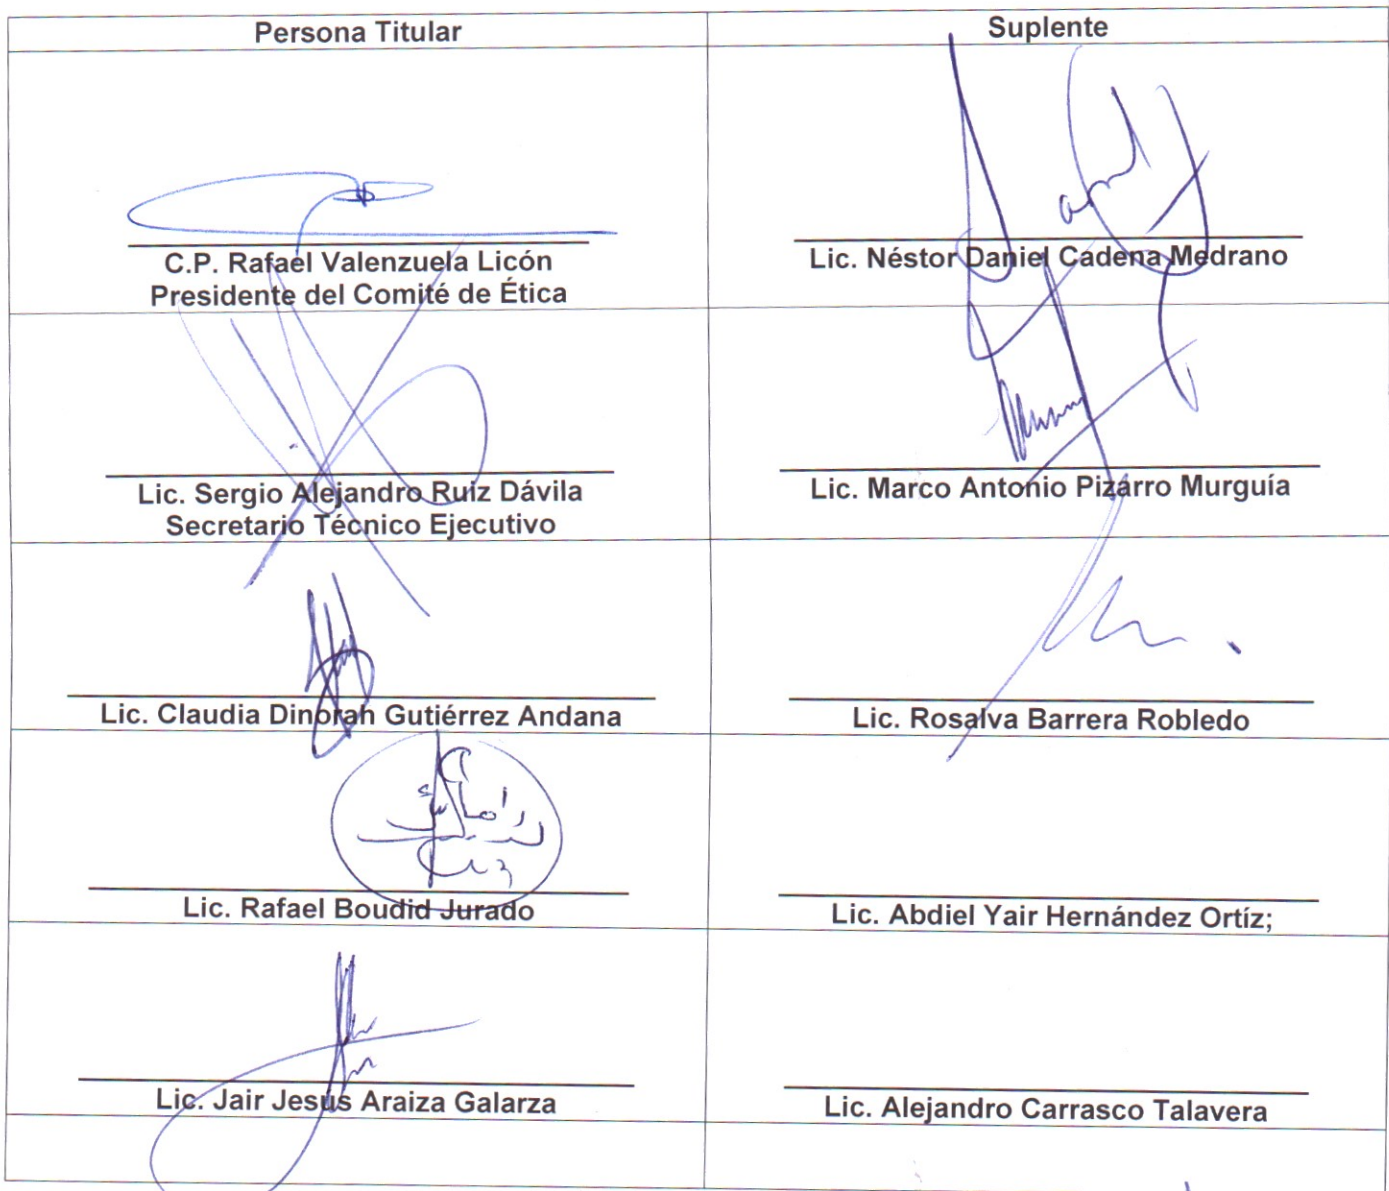 Persona Titular
Suplente
C.P. Rafael Valenzuela Licón
Presidente del Comité de Ética
Lic. Néstor Daniel Cadena Medrano
Lic. Sergio Alejandro Ruiz Dávila
Secretario Técnico Ejecutivo
Lic. Marco Antonio Pizarro Murguía
Lic. Claudia Dinorah Gutiérrez Andana
Lic. Rosalva Barrera Robledo
Lic. Rafael Boudid Jurado
Lic. Abdiel Yair Hernández Ortíz;
Lic. Jair Jesús Araiza Galarza
Lic. Alejandro Carrasco Talavera